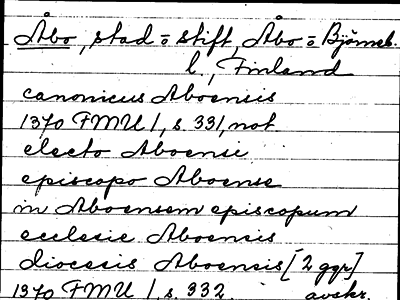 Åbo, stad o stift, Åbo o Björneb.
l., Finland
canonicus Aboensis
1370 FMU 1, s. 331, not
electo Aboensi
episcopo Aboense
in Aboensem episcopum
ecclesie Aboensis
diocesis Aboensis [2 ggr]
1370 FMU 1, s. 332. avskr.